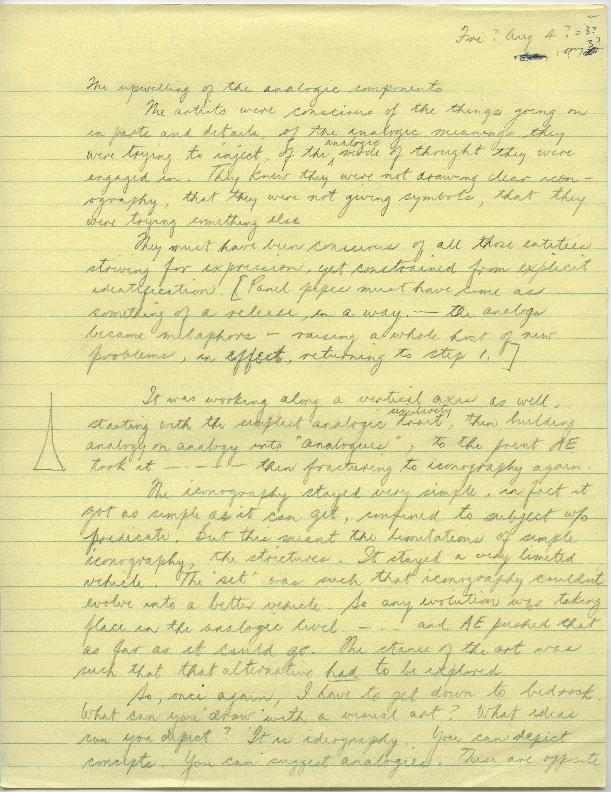 Fri? Aug 4? = 3?
3?
197
The upwelling of the analogic components
The artists were conscious of the things going on
in parts and details, of the analogic meanings they
were trying to inject, of the analogic mode of thought they were
engaged in. They knew they were not drawing clear icon-
ography, that they were not giving symbols, that they
were trying something else
They must have been conscious of all those entities
striving for expression, yet constrained from explicit
identification. [Panel pipes must have come as
something of a release, in a way. — the analogs
became metaphors — raising a whole host of new
problems, in effect, returning to step 1.]
It was working along a vertical axis as well,
starting with the simplest analogic, then building
analogy on analogy into "analogues", to the point AE
took it — — — — then fracturing to iconography again.
The iconography stayed very simple, in fact it
got as simple as it can get, confined to subject w/o
predicate. But this meant the limitations of simple
iconography, the strictures. It stayed a very limited
vehicle. The "set" was such that iconography couldn't
evolve into a better vehicle. So any evolution was taking
place in the analogic level — . . . and AE pushed that
as far as it could go. The stance of the art was
such that that alternative had to be explored
So, once again, I have to get down to bedrock.
What can you "draw" with a visual art? What ideas
can you depict? It is ideography. You can depict
concepts. You can suggest analogies. These are opposite